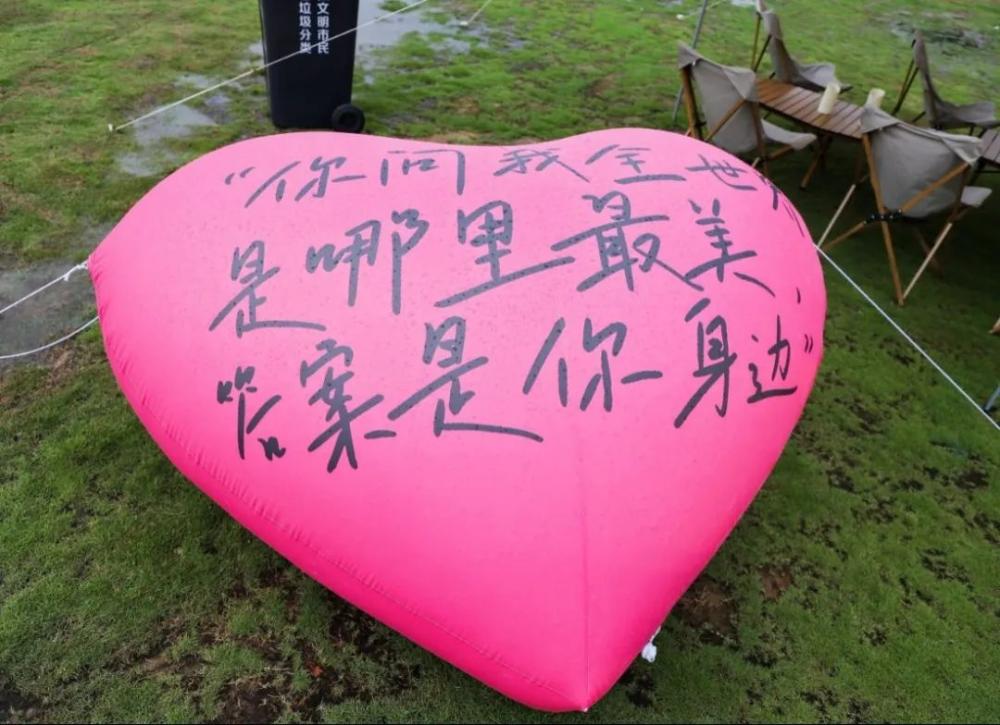 文明市民
垃圾分类
“你问我全世界
是哪里最美，
答案是你身边”